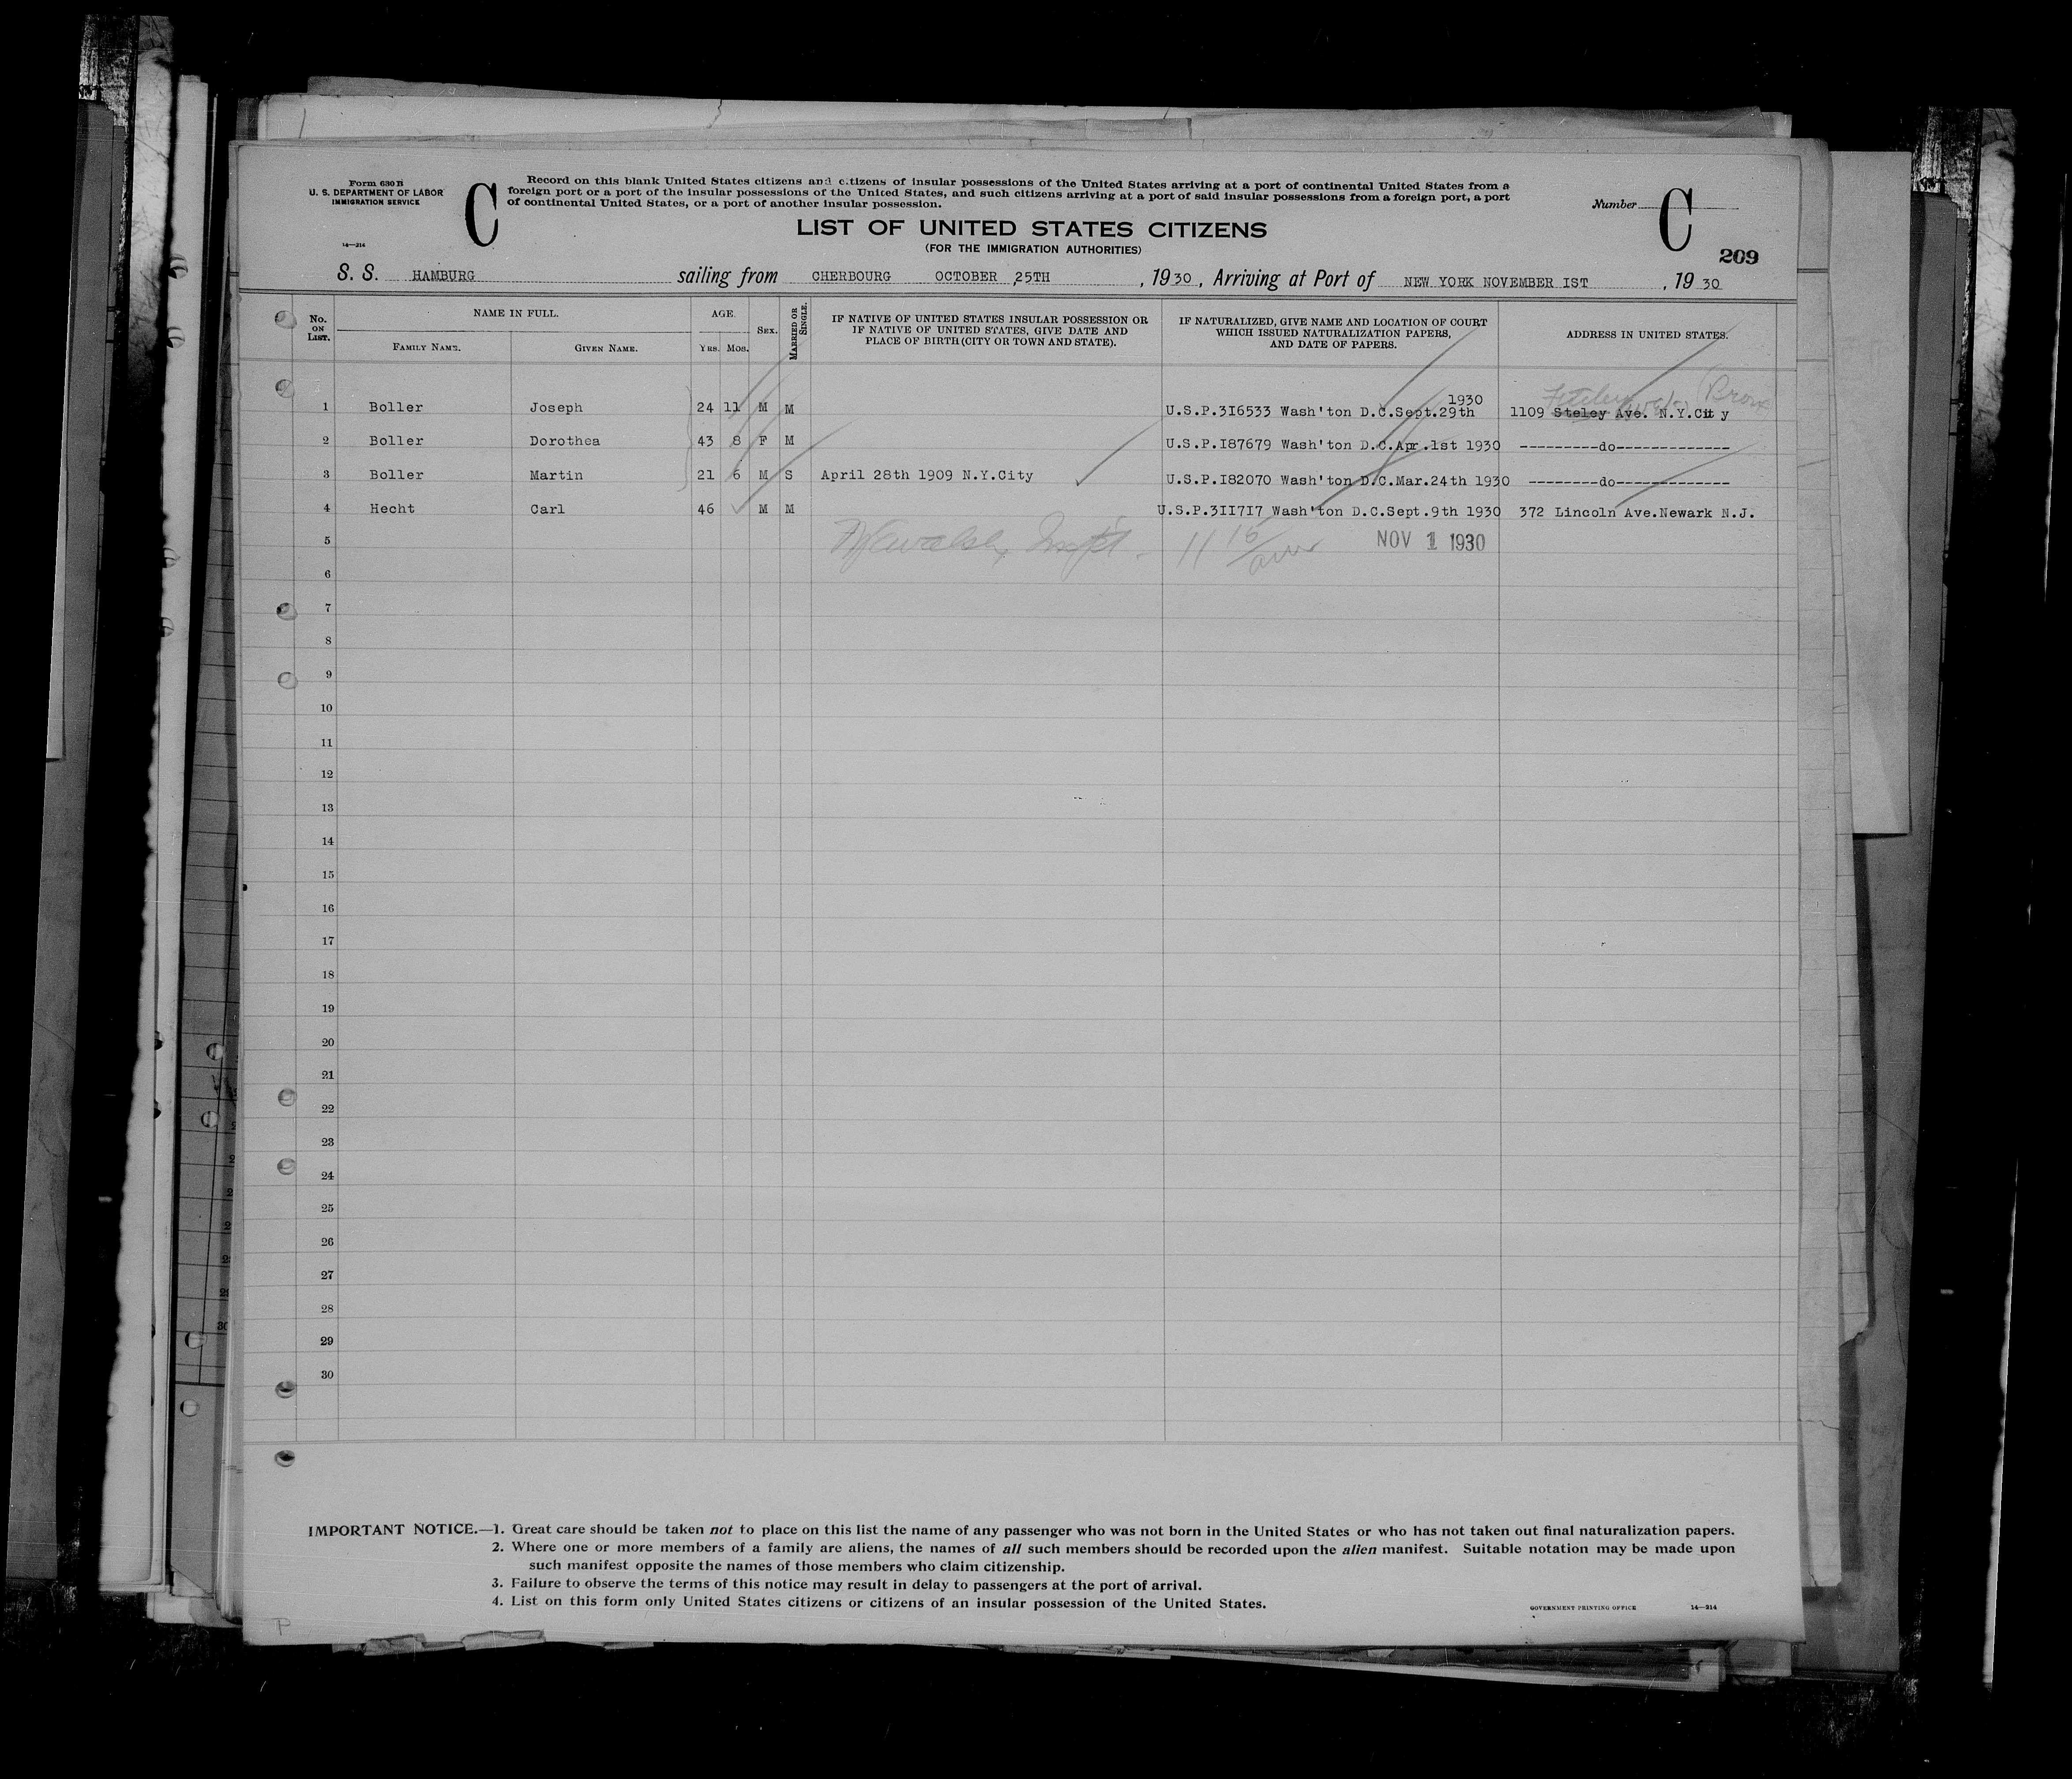 Form 630 B
U. S. DEPARTMENT OF LABOR
IMMIGRATION SERVICE
14—214
C
Record on this blank United States citizens and citizens of insular possessions of the United States arriving at a port of continental United States from a
foreign port or a port of the insular possessions of the United States, and such citizens arriving at a port of said insular possessions from a foreign port, a port
of continental United States, or a port of another insular possession.
LIST OF UNITED STATES CITIZENS
(FOR THE IMMIGRATION AUTHORITIES)
Number
C
209
S. S. HAMBURG sailing from CHERBOURG OCTOBER ,25TH , 1930, Arriving at Port of NEW YORK NOVEMBER IST , 19 30
No. ON LIST. NAME IN FULL. AGE. SEX. MARRIED OR SINGLE. IF NATIVE OF UNITED STATES INSULAR POSSESSION OR IF NATIVE OF UNITED STATES, GIVE DATE AND PLACE OF BIRTH (CITY OR TOWN AND STATE). IF NATURALIZED, GIVE NAME AND LOCATION OF COURT WHICH ISSUED NATURALIZATION PAPERS, AND DATE OF PAPERS. ADDRESS IN UNITED STATES.
FAMILY NAME. GIVEN NAME. YRS. MOS.
1930 Bronx
1 Boller Joseph 24 11 M M U.S.P.3I6533 Wash'ton D.C.Sept.29th 1109 Steley Ave. N.Y.City
2 Boller Dorothea 43 8 F M U.S.P.I87679 Wash'ton D.C.Apr.1st 1930 ---------do-------------
3 Boller Martin 21 6 M S April 28th 1909 N.Y.City U.S.P.I82070 Wash'ton D.C.Mar.24th 1930 --------do-------------
4 Hecht Carl 46 M M U.S.P.3II7I7 Wash'ton D.C.Sept.9th 1930 372 Lincoln Ave.Newark N.J.
5 11 15/am NOV 1 1930
6
7
8
9
10
11
12
13
14
15
16
17
18
19
20
21
22
23
24
25
26
27
28
29
30
IMPORTANT NOTICE.—1. Great care should be taken not to place on this list the name of any passenger who was not born in the United States or who has not taken out final naturalization papers.
2. Where one or more members of a family are aliens, the names of all such members should be recorded upon the alien manifest. Suitable notation may be made upon
such manifest opposite the names of those members who claim citizenship.
3. Failure to observe the terms of this notice may result in delay to passengers at the port of arrival.
4. List on this form only United States citizens or citizens of an insular possession of the United States.
GOVERNMENT PRINTING OFFICE 14—214
P